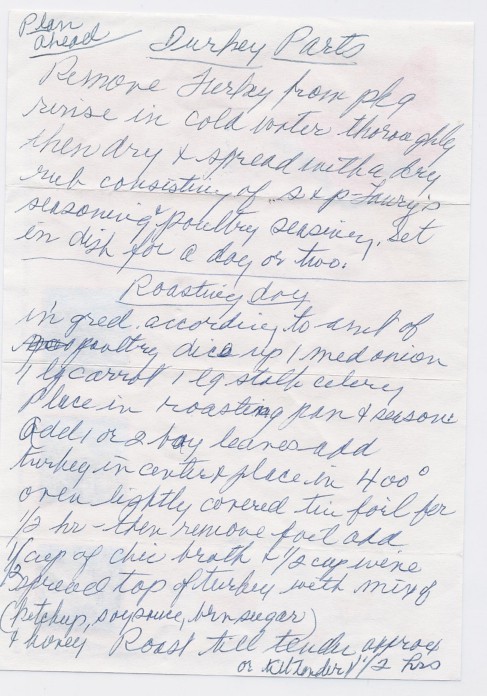 Plan
ahead
Turkey Parts
Remove Turkey from pkg
rinse in cold water thoroughly
then dry & spread with a dry
rub consisting of s & p - Lawry's
seasoning & poultry seasining. Set
in dish for a day or two.
Roasting day
in gred. according to amt of
poultry dice up 1 med onion
1 lg carrot 1 lg stalk celery
Place in roasting pan & season
add 1 or 2 bay leaves add
turkey in center & place in 400°
oven lightly covered tin foil for
1/2 hr - then remove foil add
1/2 cup of chic broth & 1/2 cup wine
spread top of turkey with mix of
(ketchup, soysauce, brn sugar)
& honey Roast till tender approx
or till tender 1 1/2 hrs